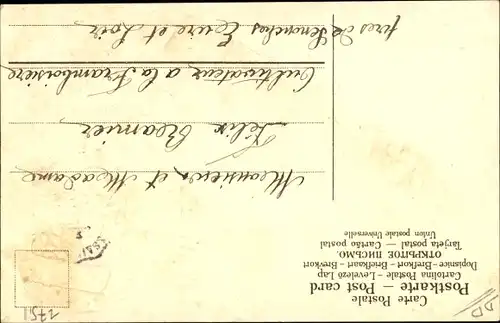 Carte Postale
Postkarte — Post card
Cartolina Postale - Levelező Lap
Dopisnice - Brefkort - Briefkaart - Brevkort
ОТКРЫТОЕ ПИСЬМО.
Tarjeta postal — Cartão postal
Union postale Universelle
Monsieur et Madame
Félix
Cultivateur a la Framboisière
pres de Senonches Eure et Loir